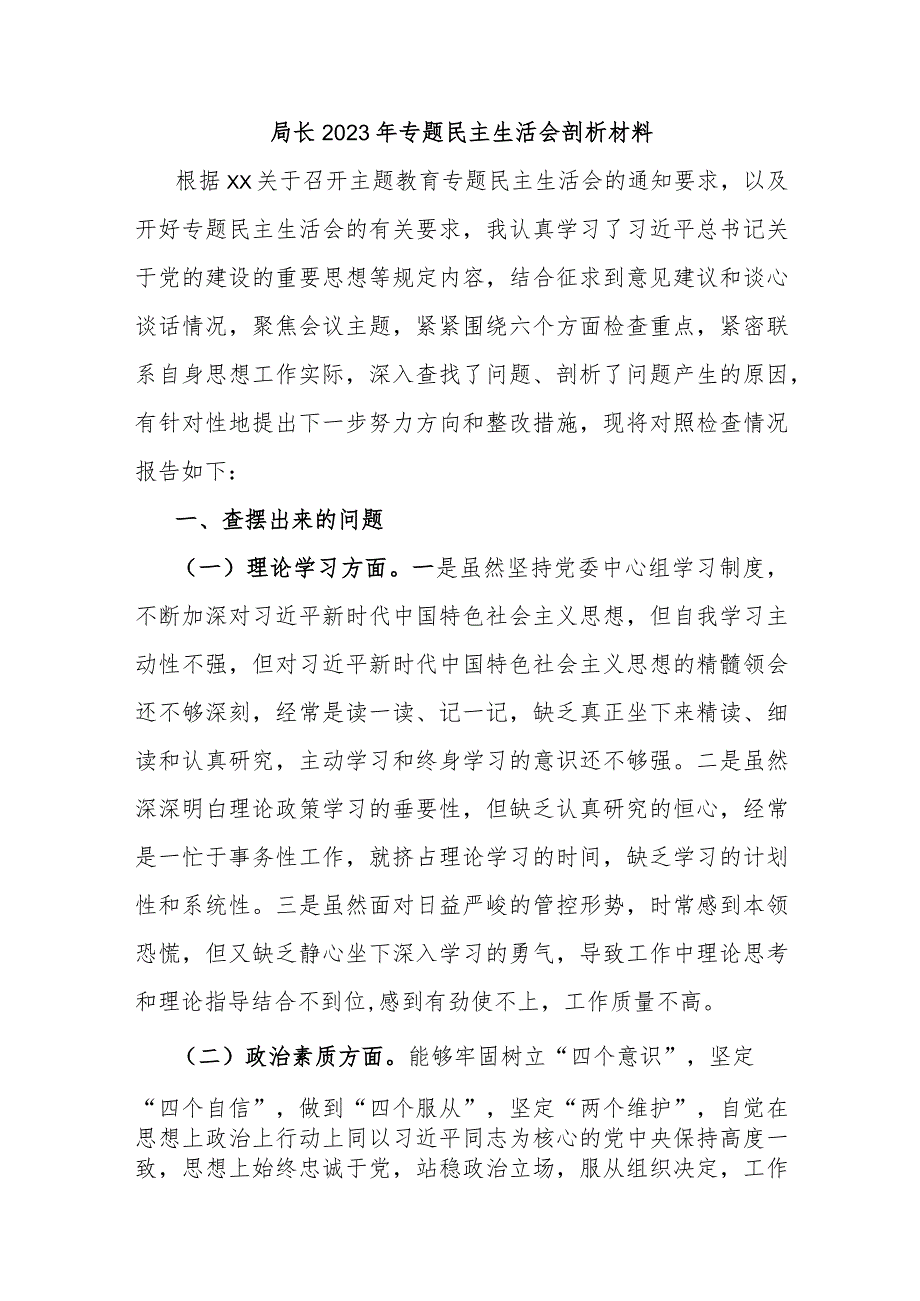 局长 2023 年专题民主生活会剖析材料
根据 xx 关于召开主题教育专题民主生活会的通知要求，以及
开好专题民主生活会的有关要求，我认真学习了习近平总书记关
于党的建设的重要思想等规定内容，结合征求到意见建议和谈心
谈话情况，聚焦会议主题，紧紧围绕六个方面检查重点，紧密联
系自身思想工作实际，深入查找了问题、剖析了问题产生的原因，
有针对性地提出下一步努力方向和整改措施，现将对照检查情况
报告如下：
一、查摆出来的问题
（一）理论学习方面。一是虽然坚持党委中心组学习制度，
不断加深对习近平新时代中国特色社会主义思想，但自我学习主
动性不强，但对习近平新时代中国特色社会主义思想的精髓领会
还不够深刻，经常是读一读、记一记，缺乏真正坐下来精读、细
读和认真研究，主动学习和终身学习的意识还不够强。二是虽然
深深明白理论政策学习的垂要性，但缺乏认真研究的恒心，经常
是一忙于事务性工作，就挤占理论学习的时间，缺乏学习的计划
性和系统性。三是虽然面对日益严峻的管控形势，时常感到本领
恐慌，但又缺乏静心坐下深入学习的勇气，导致工作中理论思考
和理论指导结合不到位,感到有劲使不上，工作质量不高。
（二）政治素质方面。能够牢固树立“四个意识”，坚定
“四个自信”，做到“四个服从”，坚定“两个维护”，自觉在
思想上政治上行动上同以习近平同志为核心的党中央保持高度一
致，思想上始终忠诚于党，站稳政治立场，服从组织决定，工作